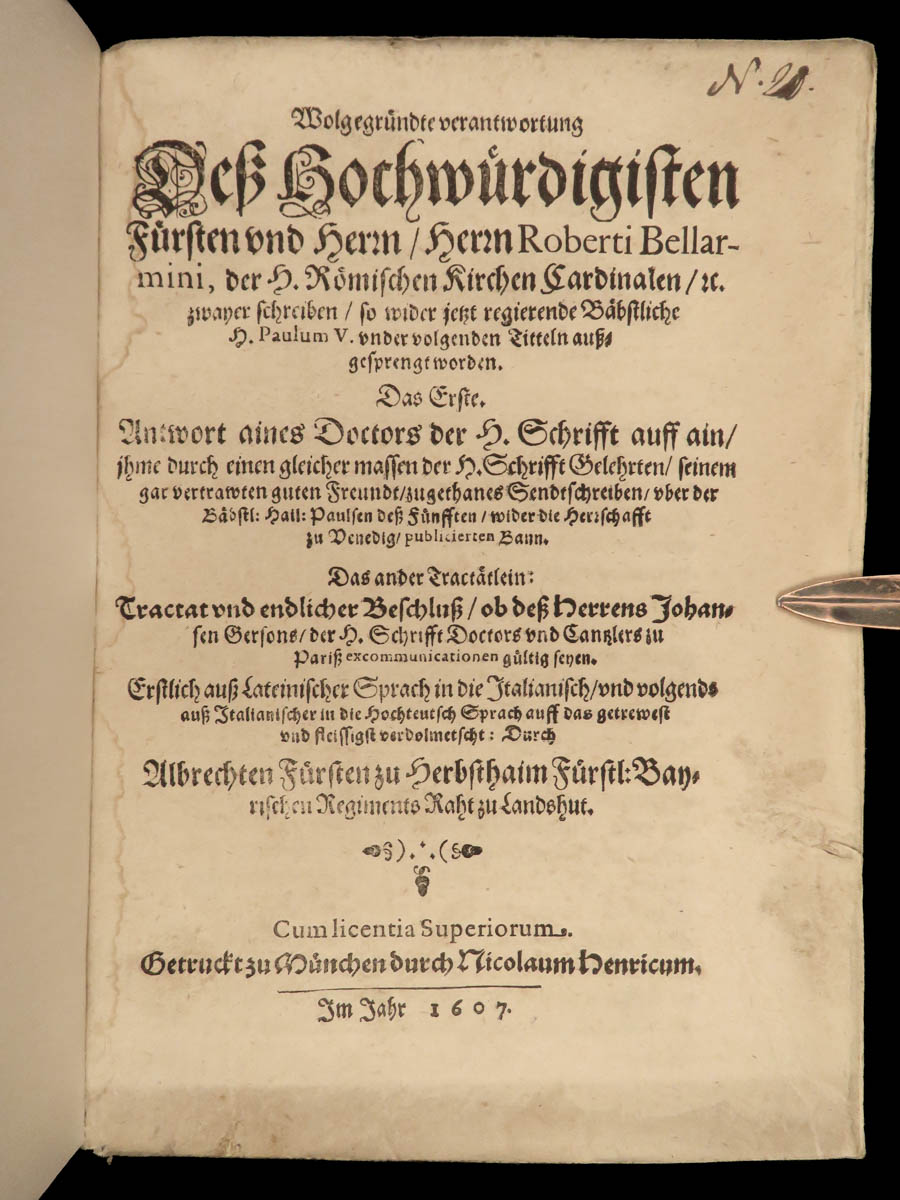 N. 20.
Wolgegründte verantwortung
Deß Hochwürdigisten
Fürsten vnd Herrn / Herrn Roberti Bellar-
mini, der H. Römischen Kirchen Cardinalen / ꝛc.
zwayer schreiben / so wider jetzt regierende Bäbstliche
H. Paulum V. vnder volgenden Titteln auß-
gesprengt worden.
Das Erste.
Antwort aines Doctors der H. Schrifft auff ain /
jhme durch einen gleicher massen der H. Schrifft Gelehrten / seinem
gar vertrawten guten Freundt / zugethanes Sendtschreiben / vber der
Bäbstl: Hail: Paulsen deß Fünfften / wider die Herrschafft
zu Venedig / publicierten Bann.
Das ander Tractätlein:
Tractat vnd endlicher Beschluß / ob deß Herrens Johan-
sen Gersons / der H. Schrifft Doctors vnd Cantzlers zu
Pariß excommunicationen gültig seyen.
Erstlich auß Lateinischer Sprach in die Italianisch / vnd volgends
auß Italianischer in die Hochteutsch Sprach auff das getrewest
vnd fleissigst verdolmetscht: Durch
Albrechten Fürsten zu Herbsthaim Fürstl: Bay-
rischen Regiments Raht zu Landshut.
Cum licentia Superiorum.
Getruckt zu München durch Nicolaum Henricum.
Im Jahr 1607.